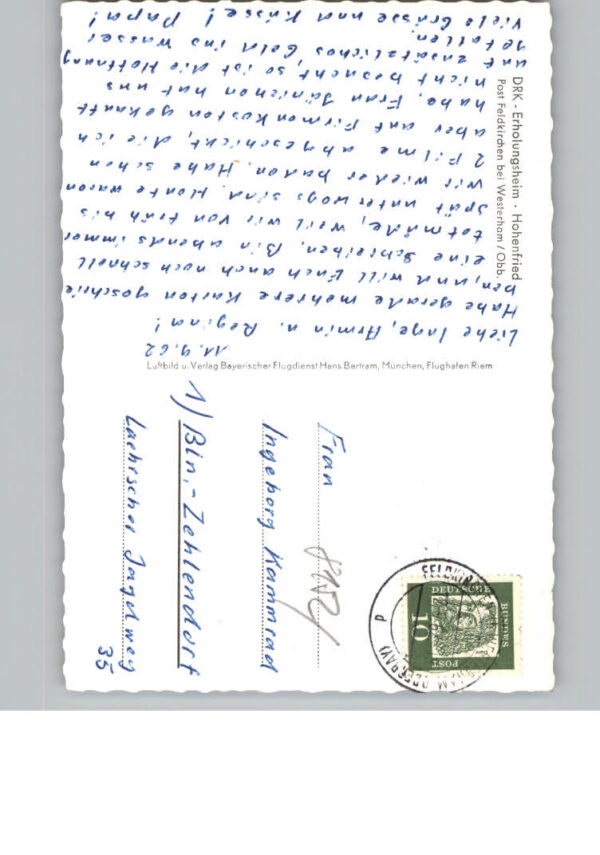 DRK - Erholungsheim · Hohenfried
Post Feldkirchen bei Westerham / Obb.
11.9.62
Liebe Inge, Armin u. Regina!
Habe gerade mehrere Karten geschrie
ben, und will Euch auch noch schnell
eine schreiben. Bin abends immer
totmüde, weil wir von früh bis
spät unterwegs sind. Heute waren
wir wieder baden. Habe schon
2 Filme abgeschickt, die ich
aber auf Firmenkosten gekauft
habe. Frau hat uns
nicht besucht, so ist die Hoffnung
auf zusätzliches Geld ins Wasser
gefallen.
Viele Grüsse und Küsse! Papa!
Luftbild u. Verlag Bayerischer Flugdienst Hans Bertram, München, Flughafen Riem
Frau
Ingeborg Kammrad
1) Bln.-Zehlendorf
Laehrscher Jagdweg
35
DEUTSCHE
BUNDES
POST
10